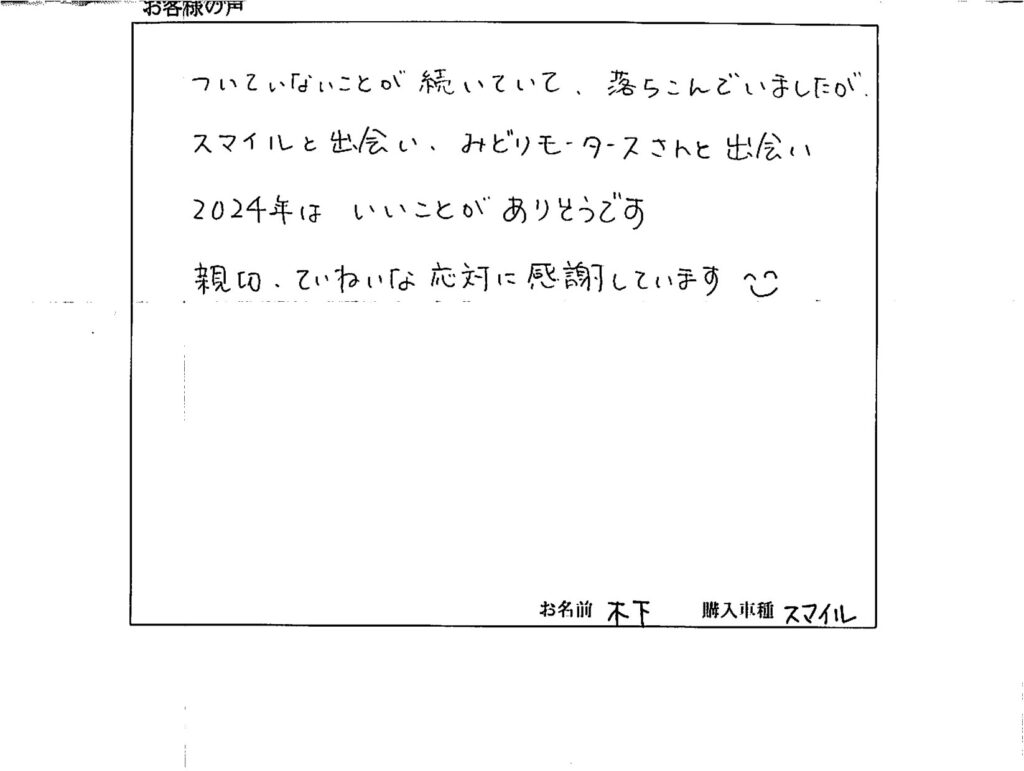 お客様の声
ついていないことが続いていて、落ちこんでいましたが、
スマイルと出会い、みどりモータースさんと出会い
2024年は いいことがありそうです
親切、ていねいな応対に感謝しています
お名前 木下 購入車種 スマイル